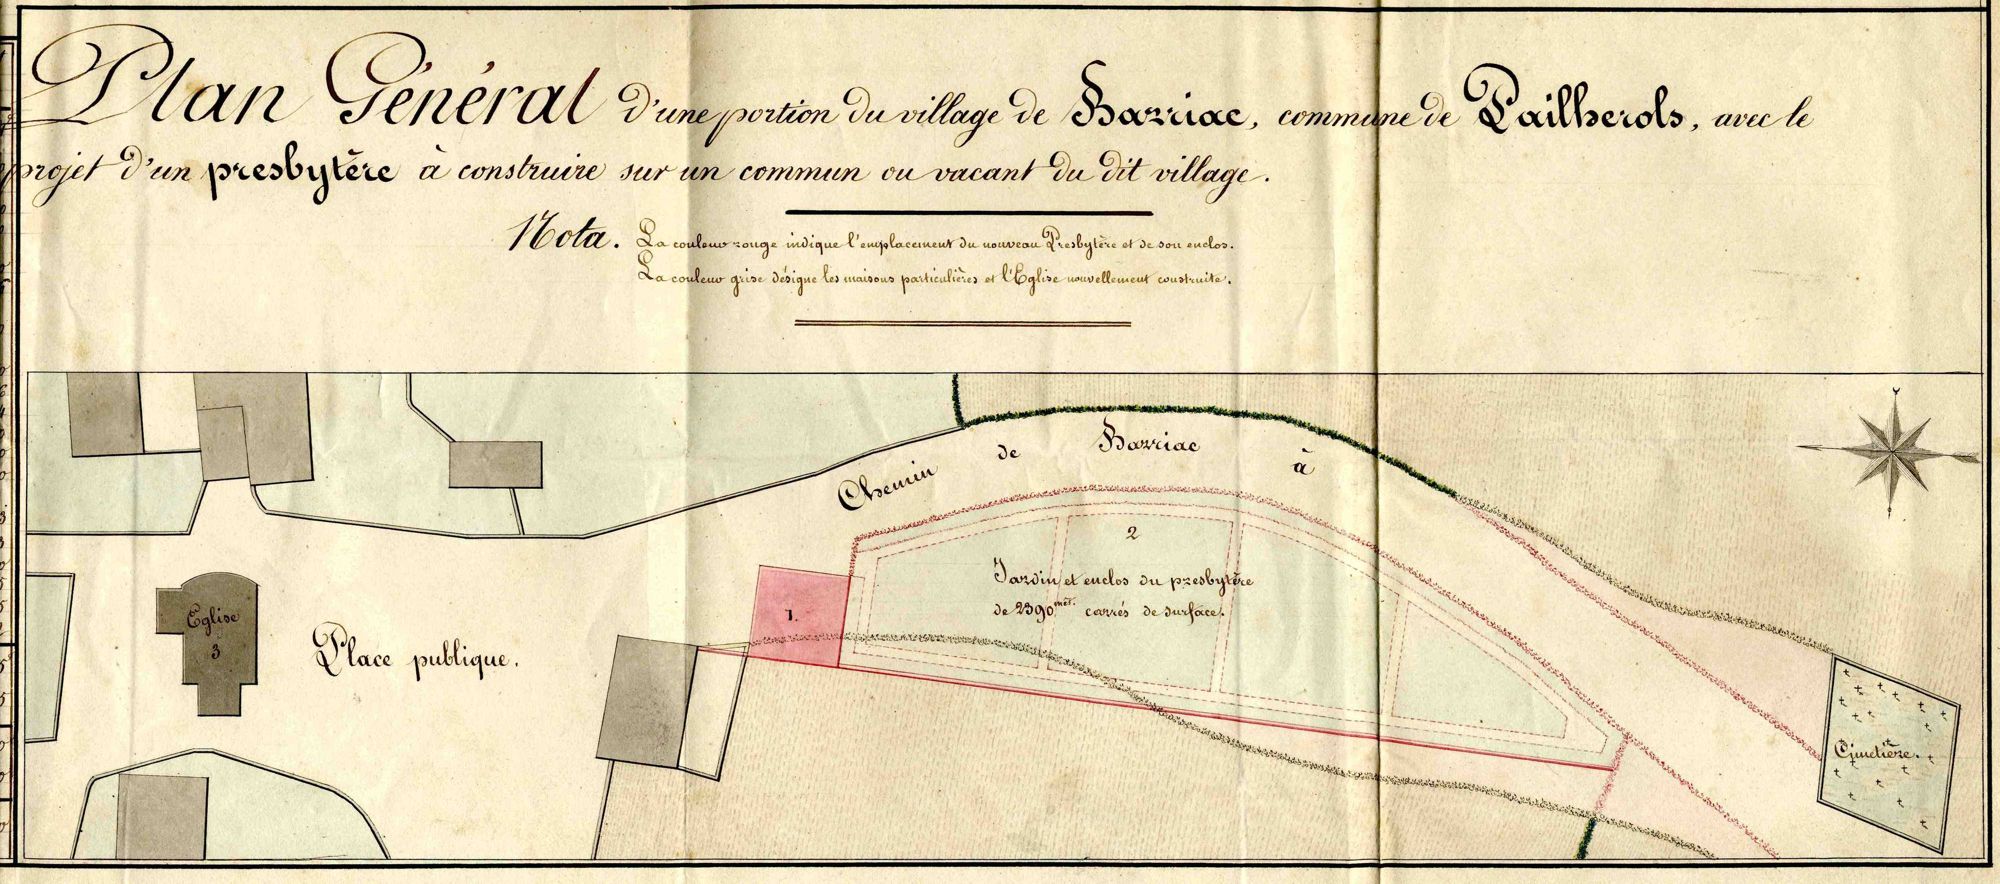 Plan Général d'une portion du village de Barriac, commune de Pailherols, avec le
projet d'un presbytère à construire sur un commun ou vacant du dit village.
Nota. La couleur rouge indique l'emplacement du nouveau Presbytère et de son enclos.
La couleur grise désigne les maisons particulières et l'Eglise nouvellement construite.
Chemin de Barriac à
2
Jardin et enclos du presbytère
de 2390 mèt. carrés de surface.
1.
Eglise
3
Place publique.
Cimetière.